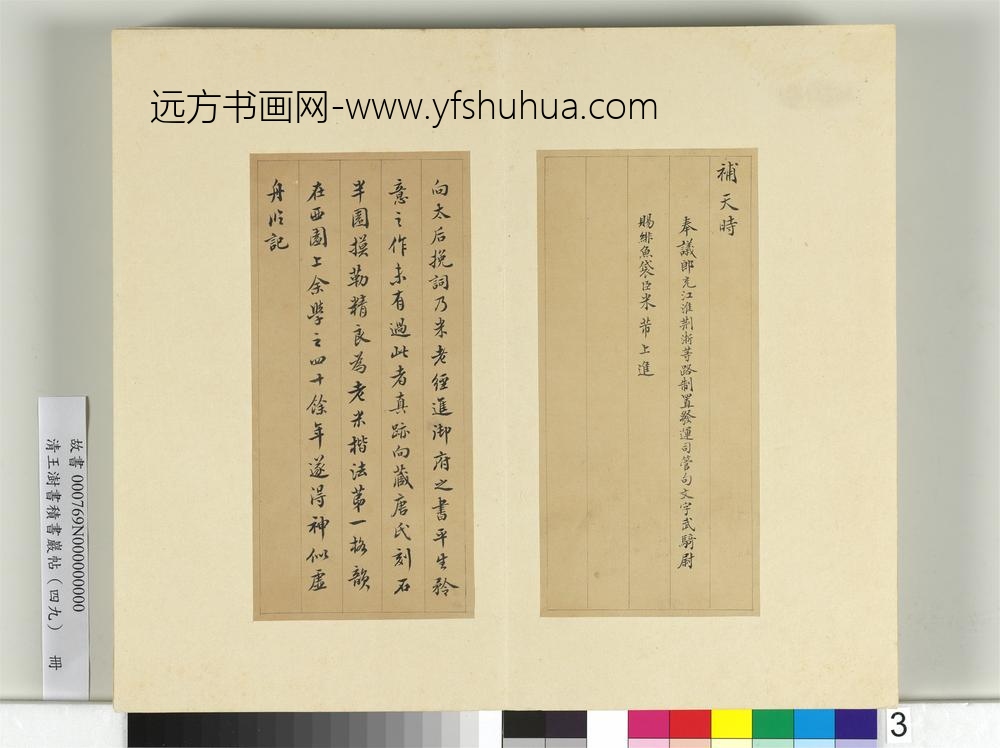 远方书画网-www.yfshuhua.com
補天時
奉議郎充江淮荆浙等路制置發運司管句文字武騎尉
賜緋魚袋臣米芾上進
向太后挽詞乃米老經進御府之書平生矜
意之作未有過此者真跡向藏唐氏刻石
半園摸勒精良為老米楷法第一格韻
在西園上余學之四十餘年遂得神似虛
舟記
故書 000769N000000000
清王澍書積書巖帖（四九） 冊
3